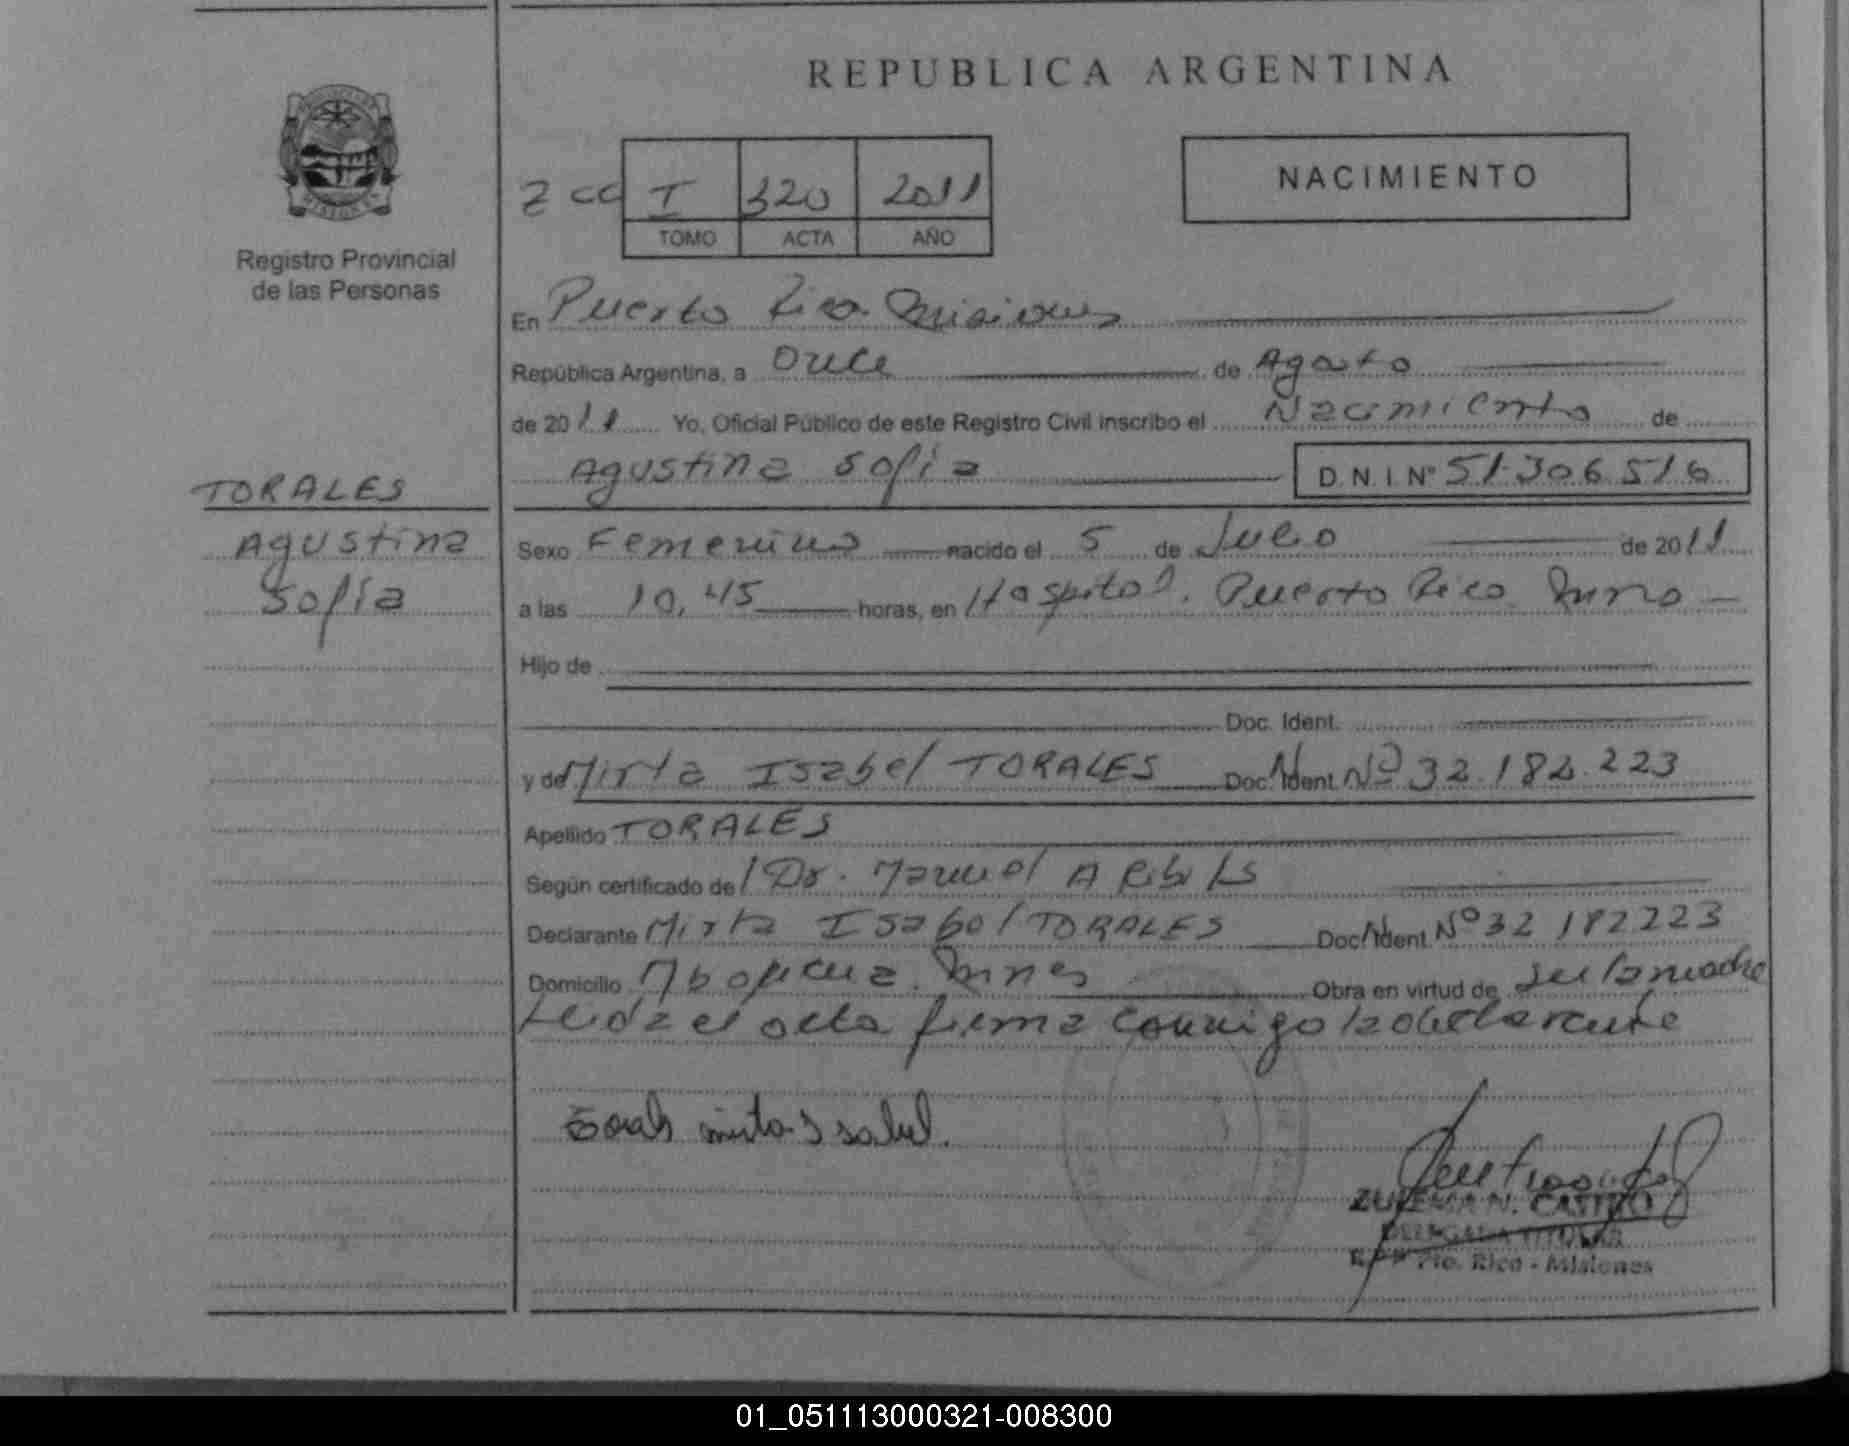 REPUBLICA ARGENTINA
NACIMIENTO
I 320 2011
TOMO ACTA AÑO
Registro Provincial
de las Personas
En Puerto Rico Misiones
República Argentina, a Once de Agosto
de 2011 Yo, Oficial Público de este Registro Civil inscribo el Nacimiento de
Agustina Sofía D.N.I. Nº 51.306.516
TORALES
Agustina
Sofía
Sexo Femenino nacido el 5 de Julio de 2011
a las 10,45 horas, en Hospital. Puerto Rico
Hijo de
Doc. Ident.
y de Mirta Isabel TORALES Doc. Ident. Nº 32.182.223
Apellido TORALES
Según certificado del Dr. Manuel A
Declarante Mirta Isabel TORALES Doc. Ident. Nº 32 182223
Domicilio Obra en virtud de ser la madre
Leida el acta firma conmigo la declarante
Mirta Isabel.
ZULEMA N. CASTRO
DELEGADA TITULAR
Pto. Rico - Misiones
01_051113000321-008300